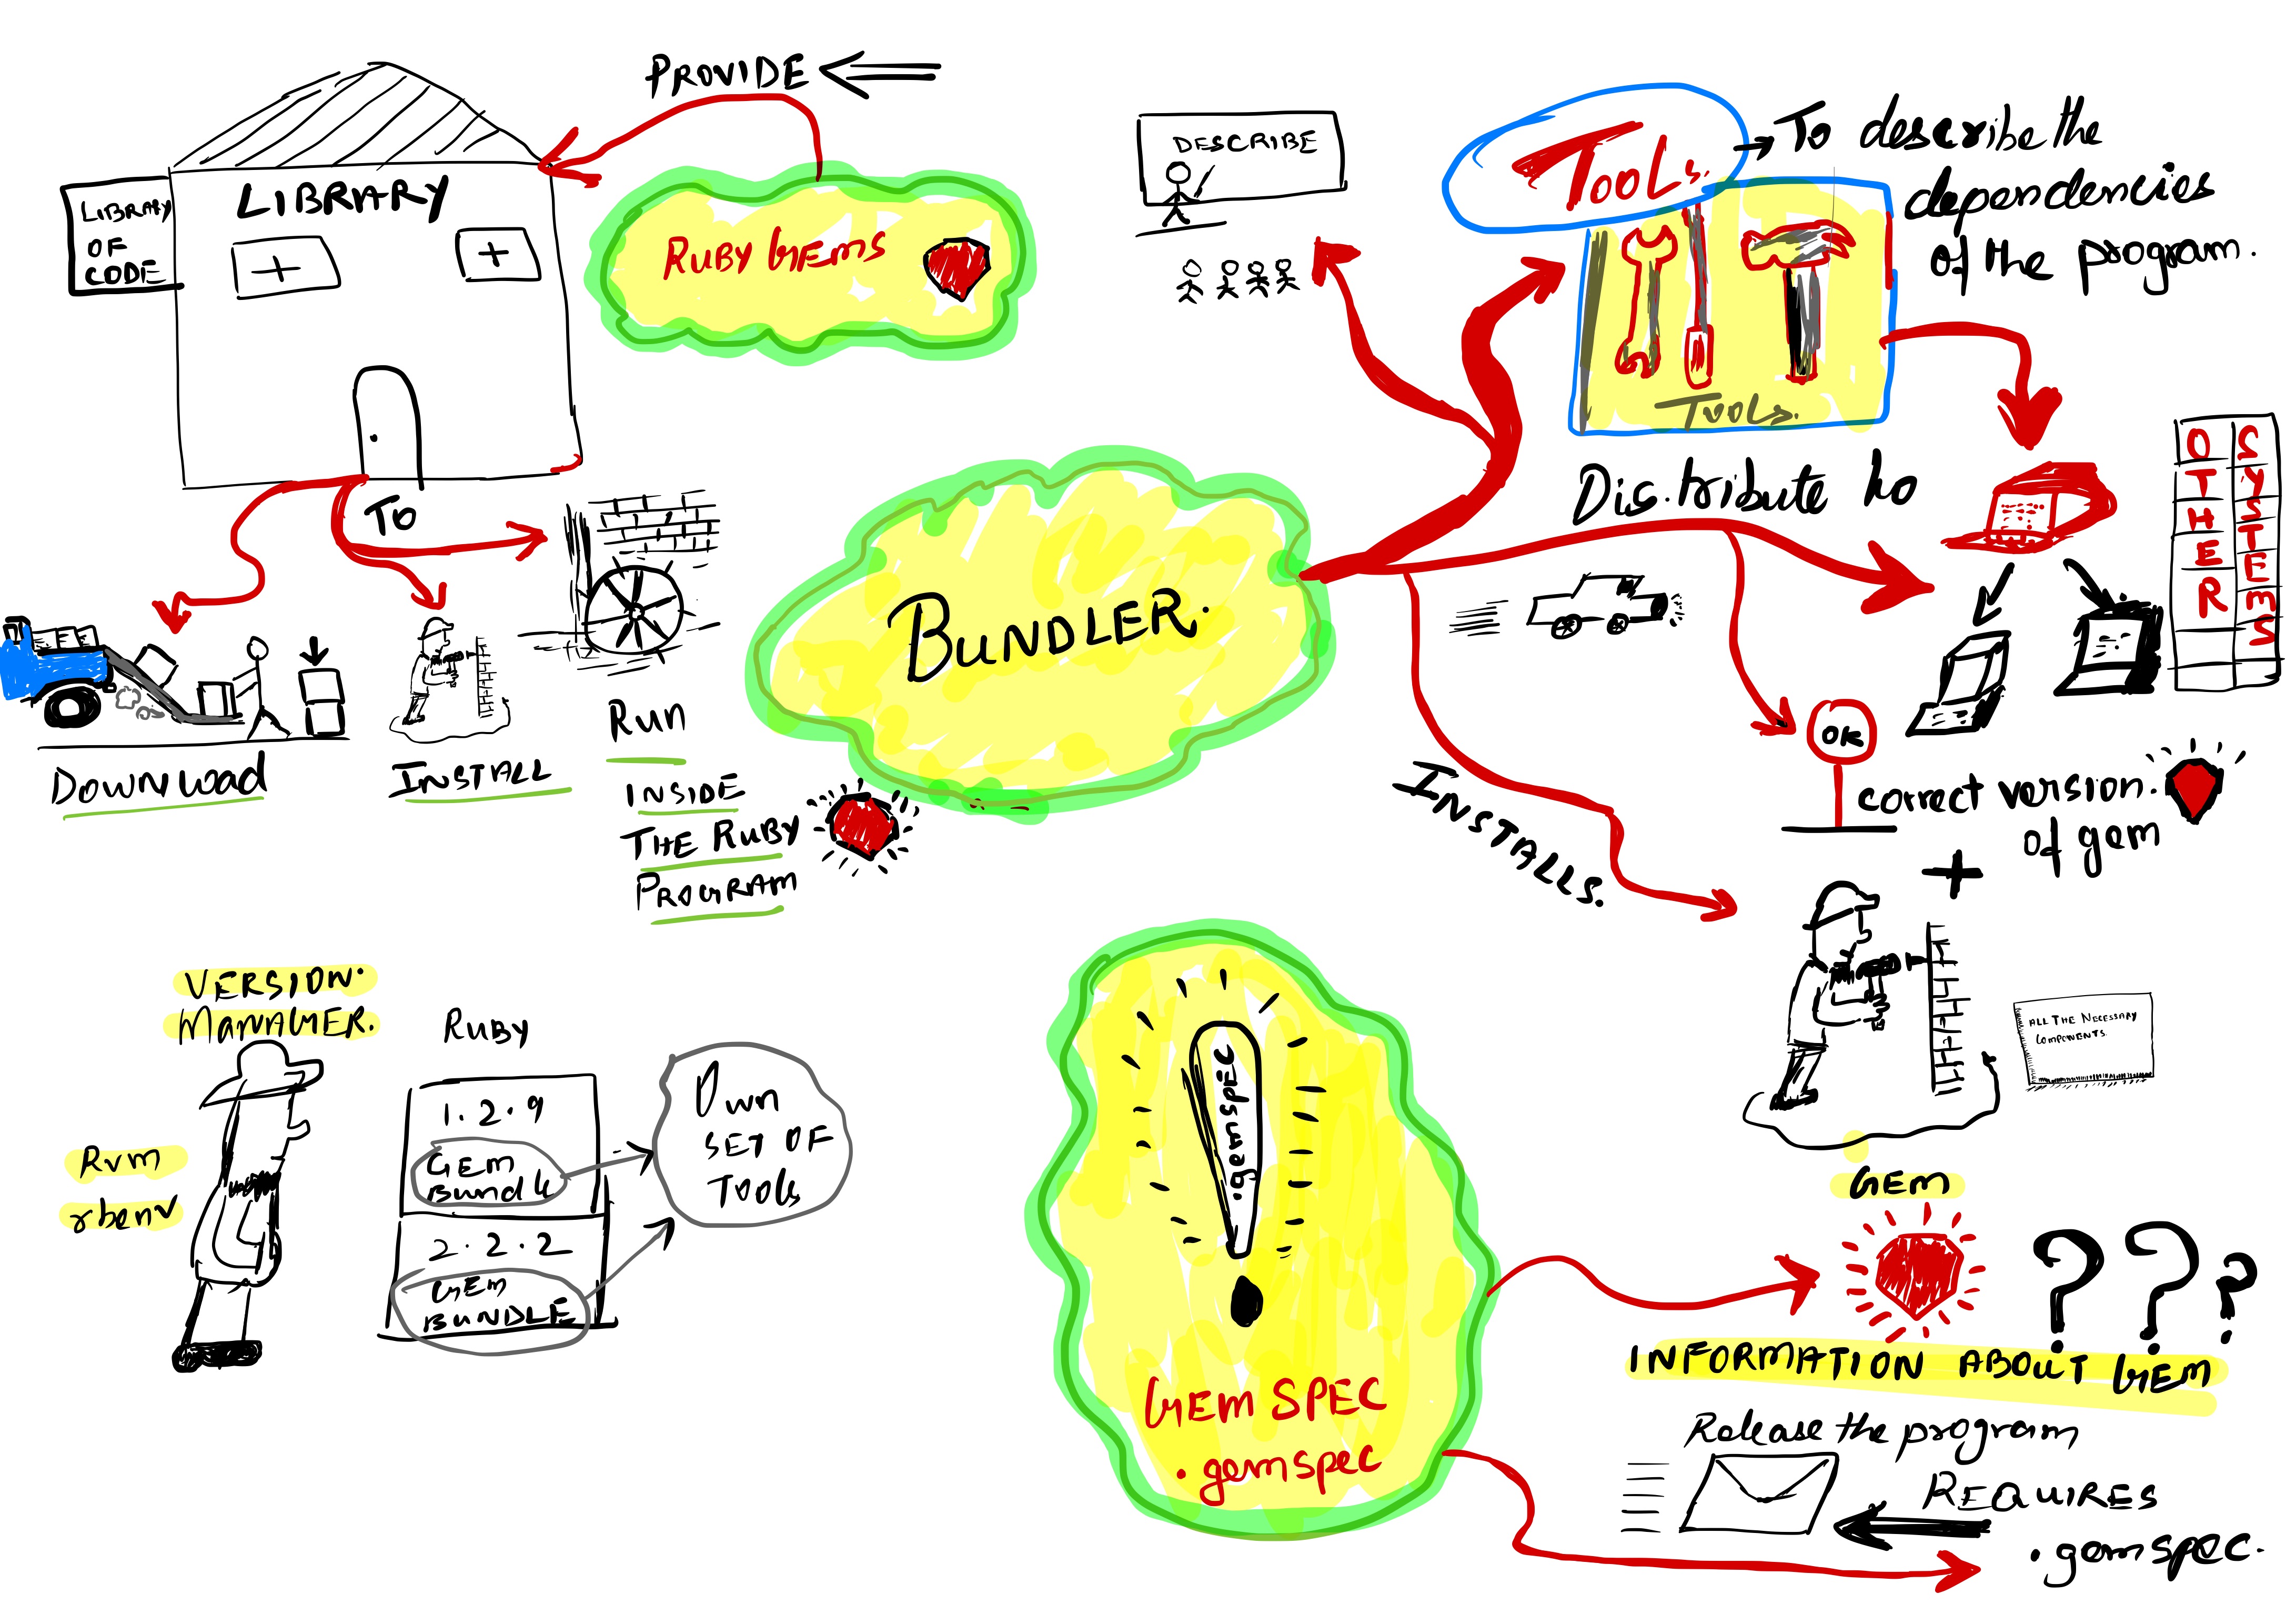 PROVIDE
LIBRARY
LIBRARY
OF
CODE
RUBY GEMS
TO
DOWNLOAD
INSTALL
Run
INSIDE
THE RUBY
PROGRAM
DESCRIBE
TOOLS.
→ To describe the
dependencies
of the program.
TOOLS.
BUNDLER.
Distribute to
OTHER
SYSTEMS
OK
correct version.
of gem
+
INSTALLS.
ALL THE NECESSARY
COMPONENTS.
VERSION.
MANAGER.
Rvm
rbenv
RUBY
1.2.9
GEM
Bundle
2.2.2
GEM
BUNDLE
Own
SET OF
TOOLS
.gemspec
GEM SPEC
.gemspec
GEM
???
INFORMATION ABOUT GEM
Release the program
REQUIRES
.gemspec.